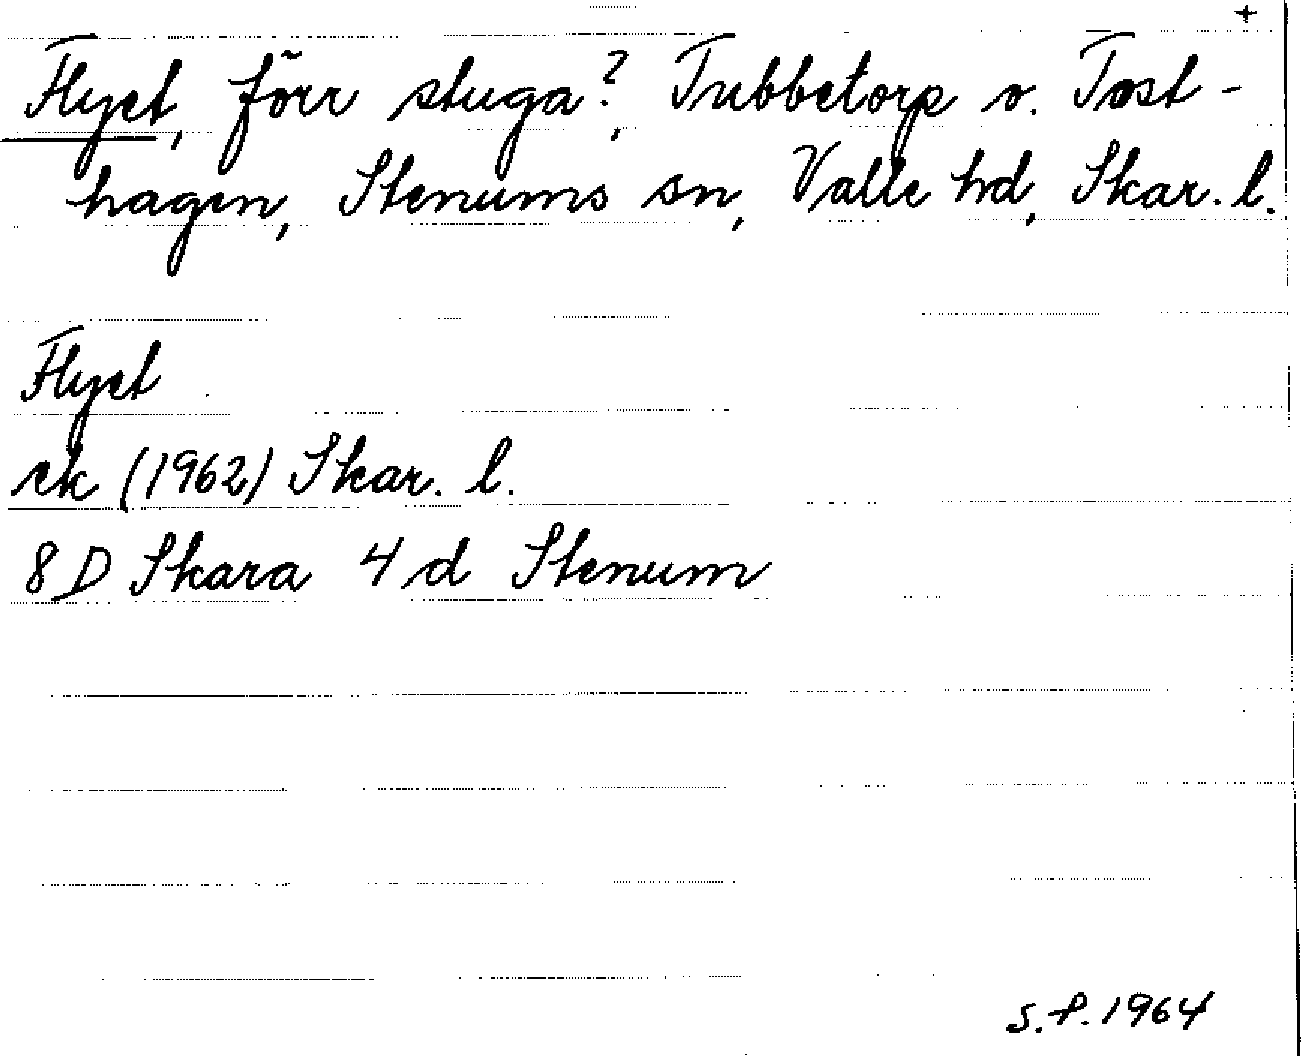 +
Flyet, förr stuga?, Tubbetorp v. Tost-
hagen, Stenums sn, Valle hd, Skar. l.
Flyet
ek (1962) Skar. l.
8 D Skara 4 d Stenum
S.P. 1964